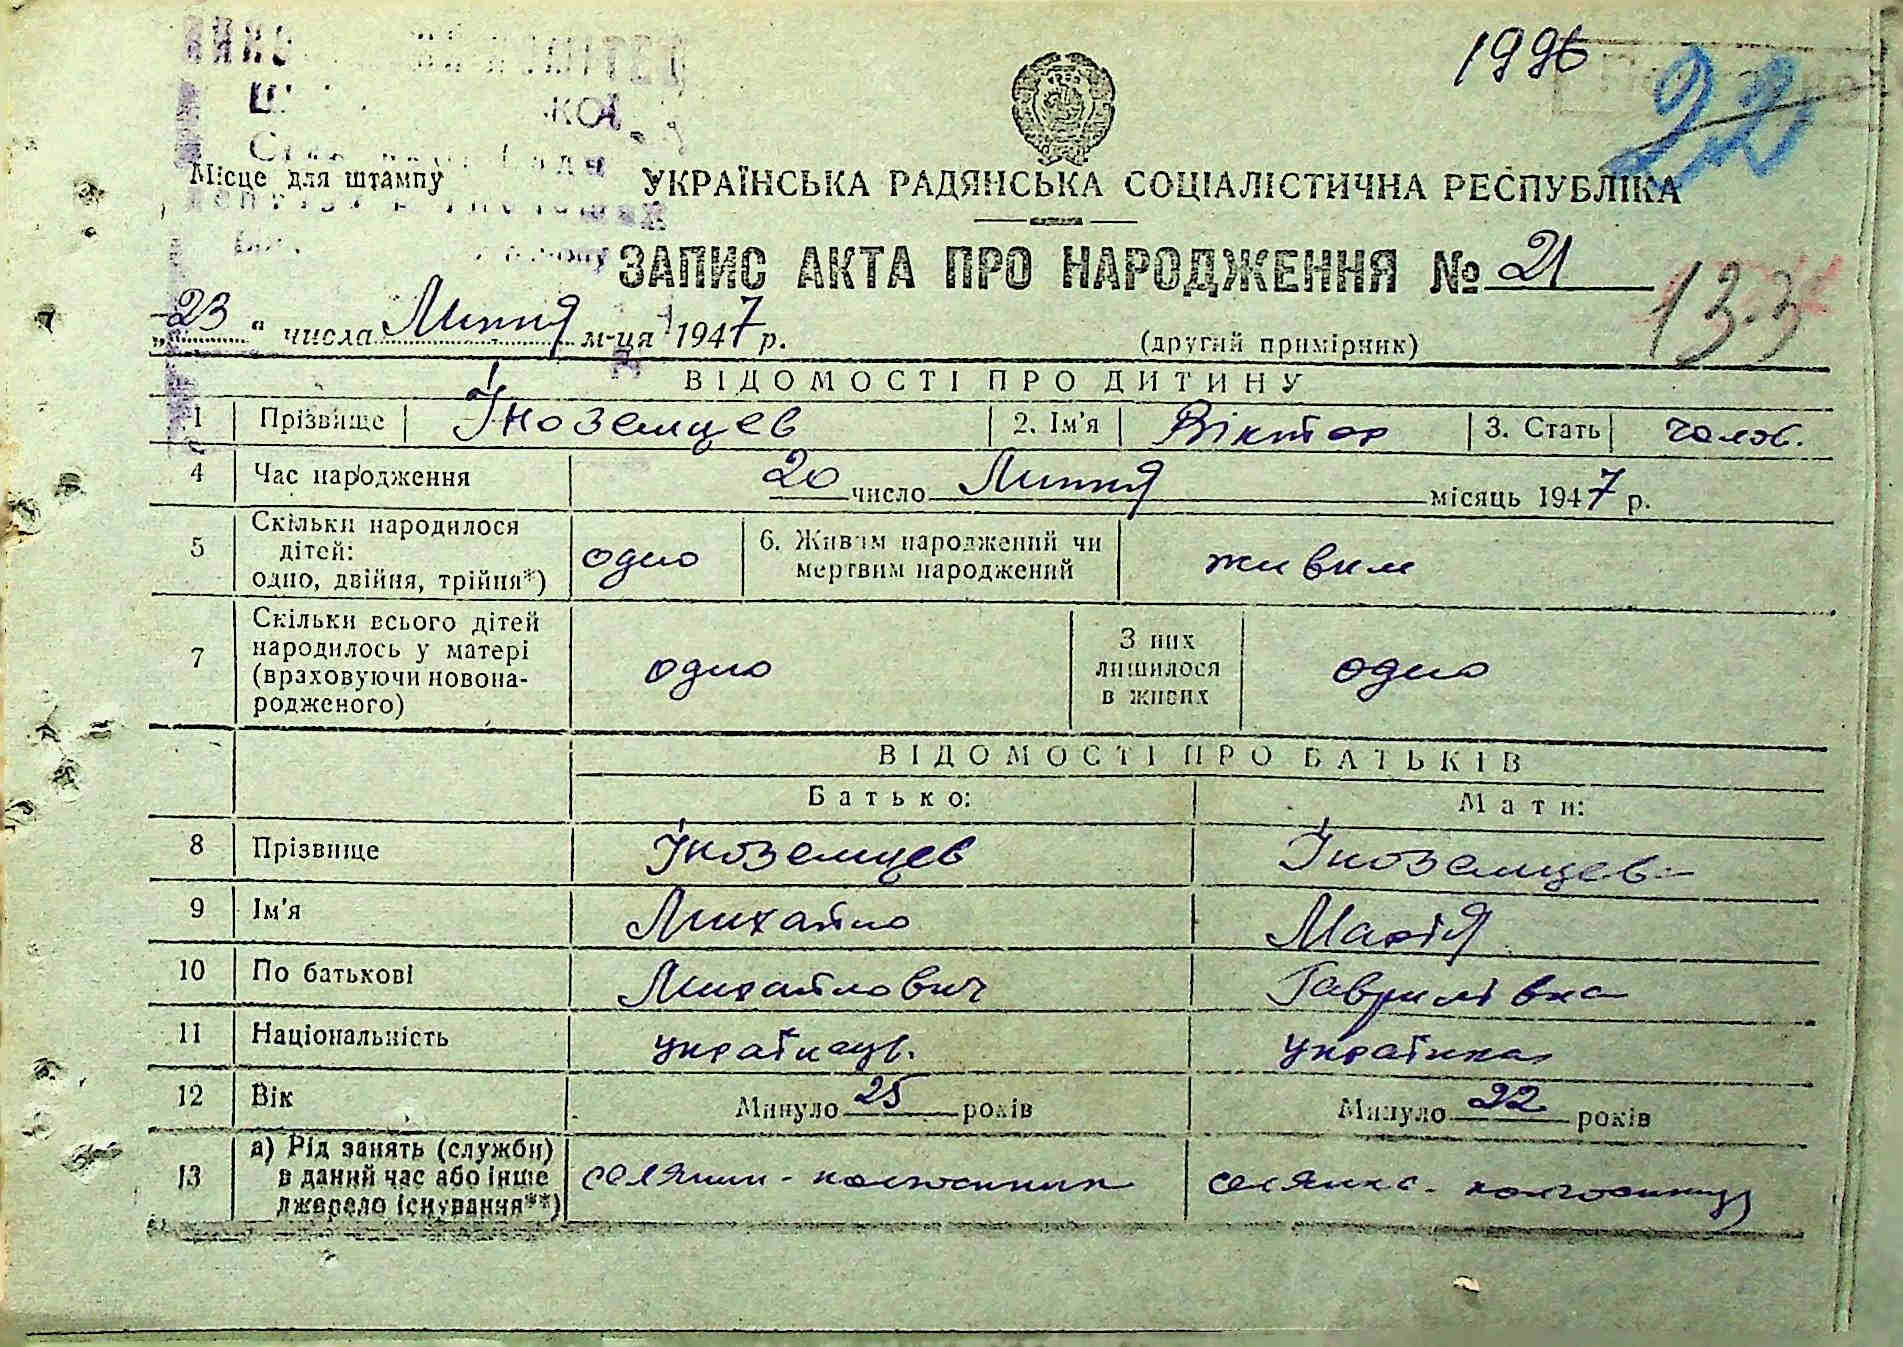 1996
22
Місце для штампу
УКРАЇНСЬКА РАДЯНСЬКА СОЦІАЛІСТИЧНА РЕСПУБЛІКА
ЗАПИС АКТА ПРО НАРОДЖЕННЯ № 21
13.3
„23“ числа Липня м-ця 1947 р.
(другий примірник)
ВІДОМОСТІ ПРО ДИТИНУ
1 Прізвище Іноземцев 2. Ім'я Віктор 3. Стать чолов.
4 Час народження 20 число Липня місяць 1947 р.
5 Скільки народилося дітей: одно, двійня, трійня*) одно 6. Живим народжений чи мертвим народжений живим
7 Скільки всього дітей народилось у матері (враховуючи новонародженого) одно З них лишилося в живих одно
ВІДОМОСТІ ПРО БАТЬКІВ
Батько: Мати:
8 Прізвище Іноземцев Іноземцева
9 Ім'я Михайло Марія
10 По батькові Михайлович Гаврилівна
11 Національність українець. українка
12 Вік Минуло 25 років Минуло 22 років
13 а) Рід занять (служби) в даний час або інше джерело існування**) селянин-колгоспник селянка-колгоспниця